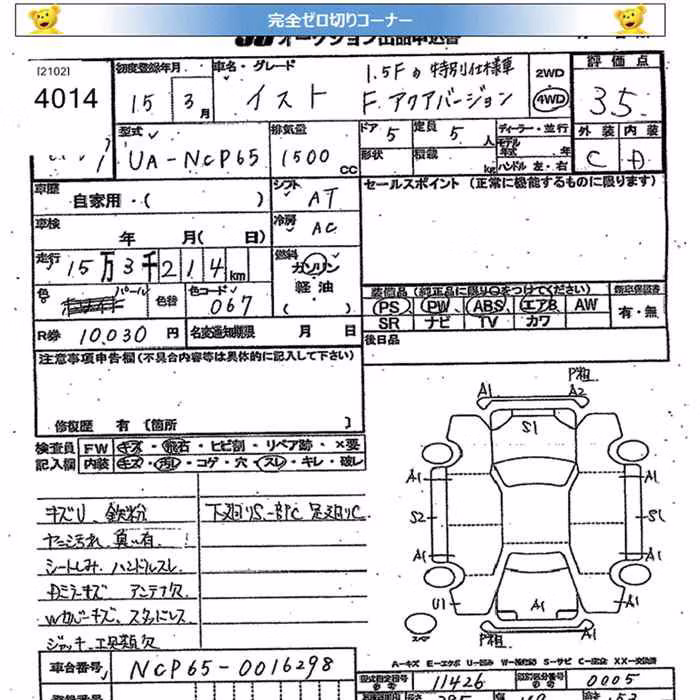 完全ゼロ切りコーナー
オークション出品申込書
[2102]
4014
初度登録年月
15年 3月
車名・グレード
イスト
1.5Fの特別仕様車
F.アクアバージョン
2WD
4WD
評価点
3.5
型式
UA-NCP65
排気量
1500 CC
ドア 5
定員 5人
形状
積載 kg
ディーラー・並行
モデル年式 年
ハンドル 左・右
外装 内装
C D
車歴
自家用・( )
シフト AT
セールスポイント (正常に機能するものに限ります)
車検
年 月( 日)
冷房 AC
走行
15万3千214km
燃料
ガソリン
軽油
( )
色
パール
色替
色コード
067
装備品 (純正品に限り○をつけてください)
PS PW ABS エアB AW
SR ナビ TV カワ
新車保証書
有・無
R券 10,030円
名変通知期限 月 日
後日品
注意事項申告欄 (不具合内容等は具体的に記入して下さい)
修復歴 有 [箇所 ]
検査員 FW キズ・飛石・ヒビ割・リペア跡・×要
記入欄 内装 キズ・汚れ・コゲ・穴・スレ・キレ・破レ
キズU、鉄粉
ヤニ汚れ、臭い有
シートしみ、ハンドルスレ
ドアミラーキズ アンテナ欠
Wカバーキズ、スタッドレス
ジャッキ、工具類欠
下廻りS、一部C 足廻りC
P粗
A1 A2
S1
A1 A1
S2 S1
A1 A1
U1 A1 A1
P粗 A1
A-キズ E-エクボ U-凹み W-補修跡 S-サビ C-腐食 XX-交換済
車台番号 NCP65-0016298
型式指定番号 11426
類別区分番号 0005
登録番号